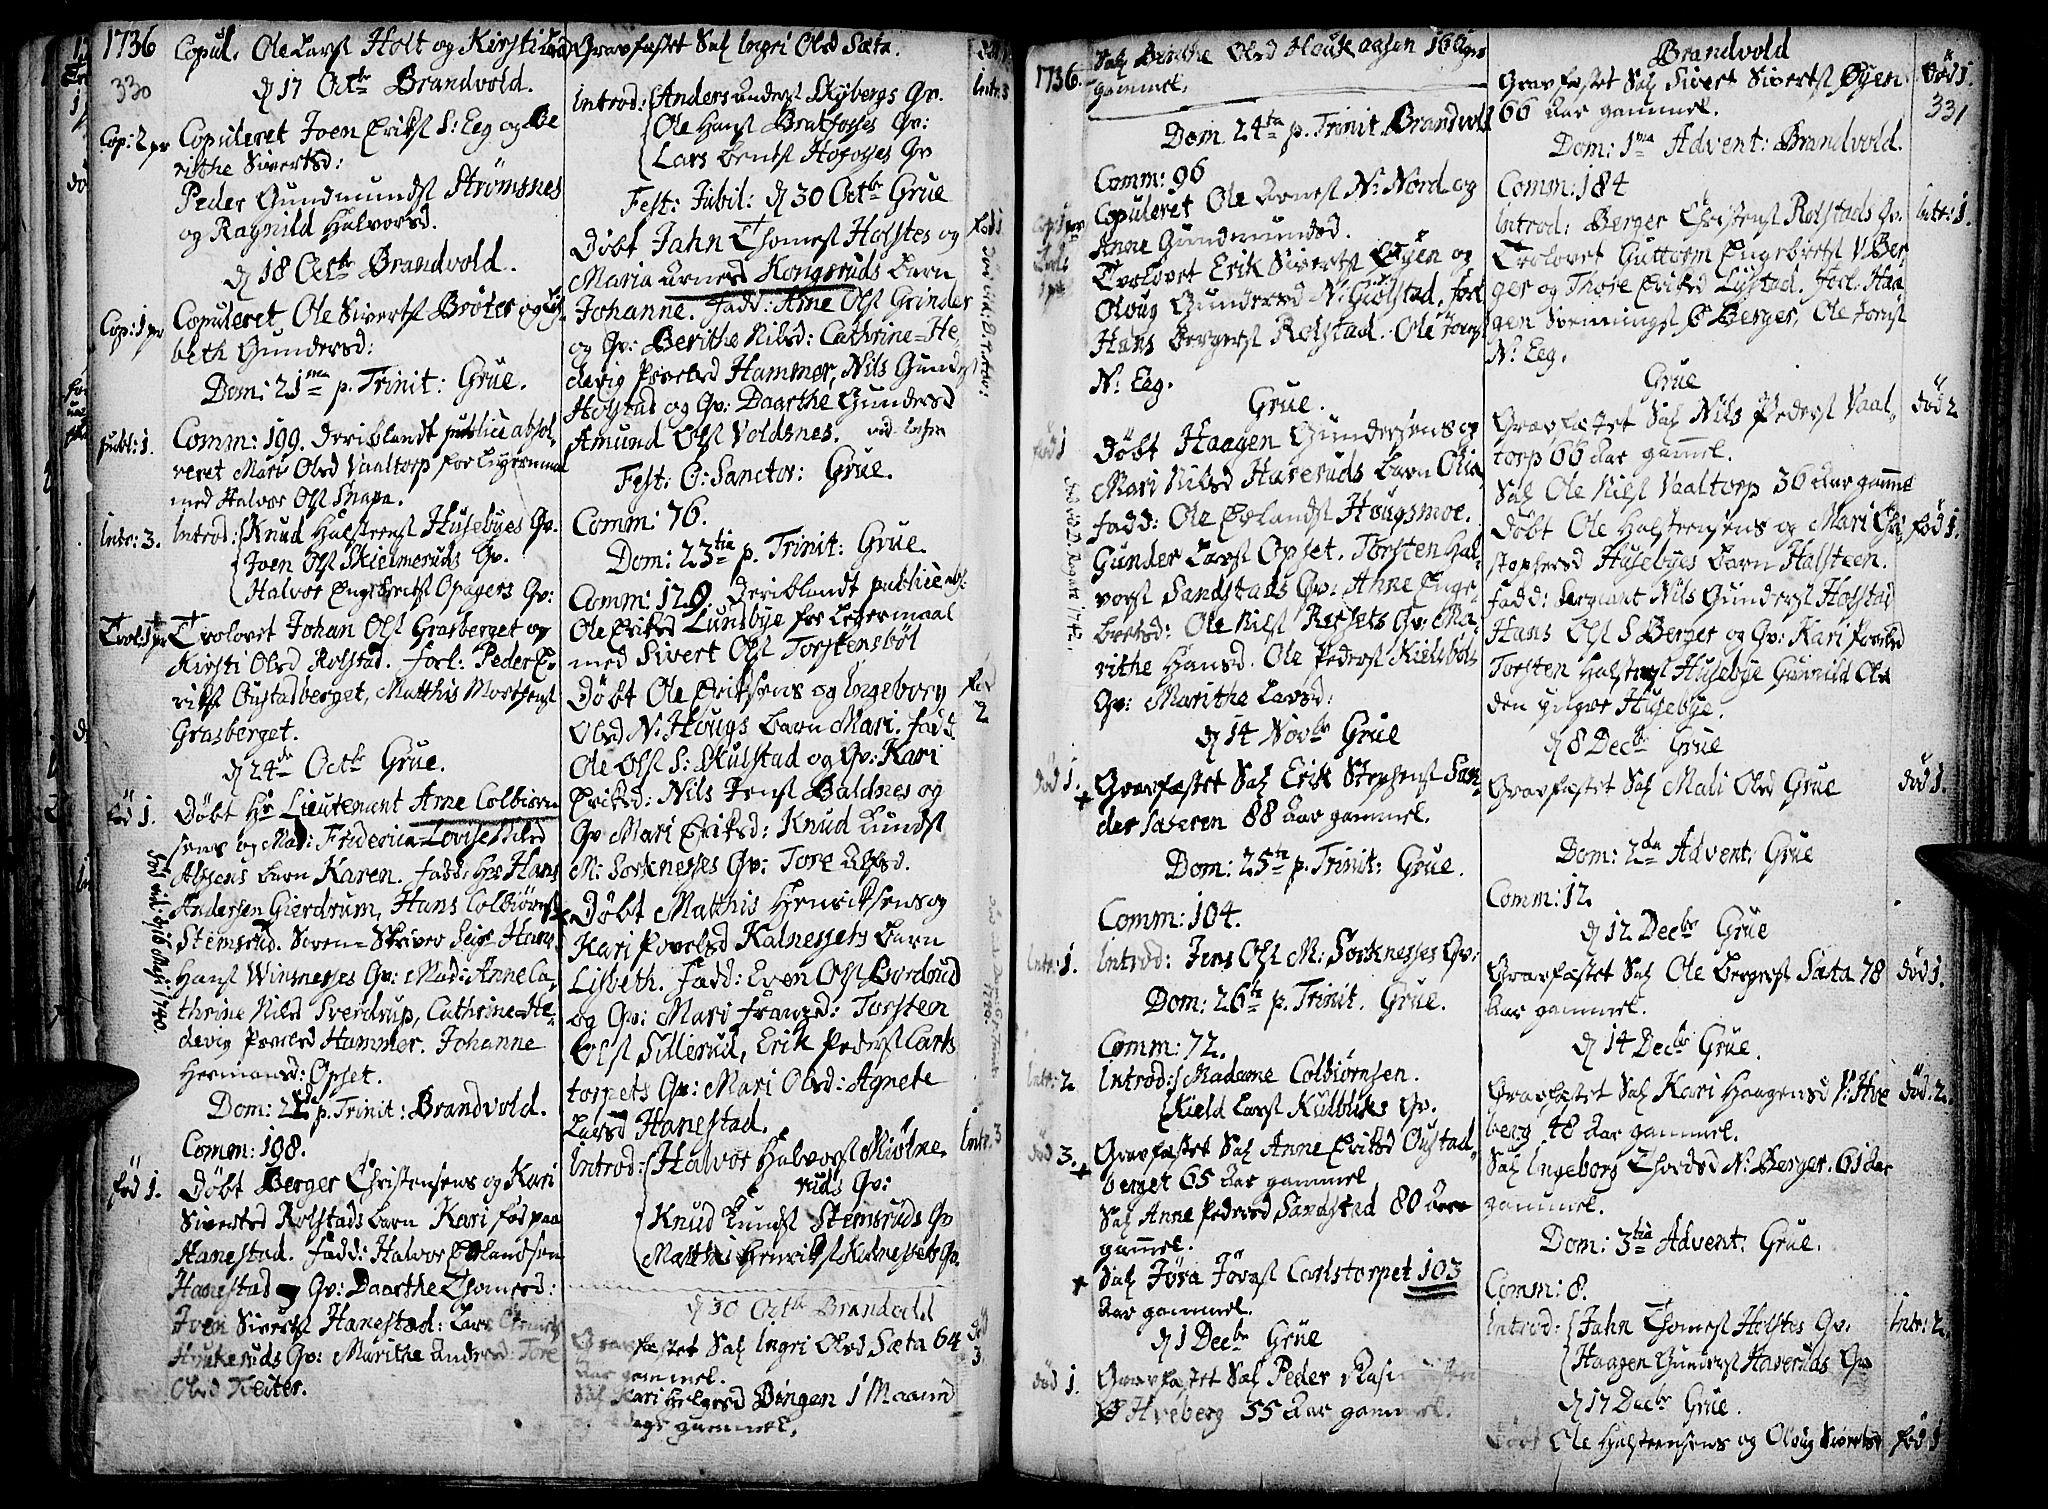 1736
330
Copul. Ole Larsf Holt og Kirsti
d 17 Octb Brandvold.
Cop: 2 pr
Copuleret Joen Eriksf S: Eeg og Be
rithe Sivertsd:
Peder Gundmundsf Strömsnes
og Ragnild Halvorsd.
d 18 Octb Brandvold.
Cop: 1 pr
Copuleret Ole Sivertsf Bröter og
beth Gundersd:
Dom: 21ma p. Trinit: Grue.
publ: 1.
Comm: 199. deriblandt publice absol-
veret Mari Olsd Vaaltorp for Leyermaal
med Halvor Olsf Snapa.
Intr: 3.
Introd: Knud Halsteensf Husebyes Qv.
Joen Olsf Skielmeruds Qv.
Halvor Engebretsf Opagers Qv:
Trol: 1 pr
Trolovet Johan Olsf Grasberget og
Kirsti Olsd Rolstad. forl: Peder E-
riksf Gustadberget, Matthis Mortensf
Grasberget.
d 24de Octb Grue.
föd 1.
Döbt Hr Lieutenant Arne Colbiörn
sens og Mad: Friderica Lovise Nilsd
Alssens barn Karen. fadd: Hr Hans
Andersen Gierdrum, Hans Colbiörns
Stemsrud. Soren-Skriver Seigr Hans
Hansf Winsnesses Qv: Mad: Anne Ca-
thrine Nilsd Sverdrup, Cathrine-He-
devig Povelsd Hammer. Johanne
Hermansd: Opset.
död vid. d 16 Maji 1740
Dom: 22da p. Trinit: Brandvold.
Comm: 198.
föd 1.
Döbt Berger Christensens og Kari
Sivertsd Rolstads barn Kari föd paa
Hanestad. fadd: Halvor Erlandsen
Hanestad og Qv: Daarthe Thomesd:
Joen Sivertsf Hanestad: Lars
Haukeruds Qv: Marithe Andersd: Tore
Olsd Kieiter.
Gravfæstet Sal Ingri Olsd Sæta.
Intr: 3
Introd: Anders Andersf Skybergs Qv.
Ole Hansf Bratfosses Qv:
Lars Bentsf Hofosses Qv
Fest: Jubil: d 30 Octb Grue
föd 1.
Döbt Jahn Thomesf Holstes og
Maria Arnesd Kongsruds barn
Johanne. fadd: Arne Olsf Grinder
og Qv: Berithe Nilsd: Cathrine-He-
devig Povelsd Hammer, Nils Gundersf
Holstad og Qv: Daarthe Gundersd
Amund Olsf Voldsnes.
Fest: O: Sanctor: Grue.
Comm: 76.
Dom: 23tia p. Trinit: Grue.
Comm: 129 deriblandt publice abs:
Ole Eriksd Lunsbye for Legermaal
med Sivert Olsf Torstensböl
föd 2.
Döbt Ole Eriksens og Ingeborg
Olsd N: Hougs barn Mari. fadd
Ole Olsf S: Skulstad og Qv: Kari
Eriksd: Nils Jensf Baldnes og
Qv Mari Eriksd: Knud Lundsf
M: Sorknesses Qv: Tore Olsd.
Döbt Matthis Henriksens og
Kari Povelsd Kalnessets barn
Lisbeth. Fadd: Even Olsf Bordrud
og Qv: Mari Frangsd: Torsten
Olsf Sillerud, Erik Pedersf Carls
torpets Qv: Mari Olsd: Agnete
Larsd Hanestad.
Intr. 3
Introd: Halvor Halvorsf Miölne-
ruds Qv:
Knud Lundsf Stemsruds Qv
Matthis Henriksf Kalnessets Qv.
d 30 Octb Brandvold
död 3.
Gravfæstet Sal Ingri Olsd Sæta 64
Aar gammel.
Sal Kari Helgesd Bingen 1 Maaned
og dage gammel.
1736.
Sal Berithe Olsd Houkaasen 16
gammel.
Dom 24ta p. Trinit. Brandvold
Comm: 96
Copuleret Ole Arnesf N: Nord og
Anne Gundmundsd.
Trolovet Erik Sivertsf Öyen og
Oloug Gundersd N: Giölstad. forl
Hans Bergersf Rolstad. Ole Joensf
N: Eeg.
Grue.
föd 1
Döbt Haagen Gundersens og
Mari Nilsd Haveruds barn Olia
fadd: Ole Erlandsf Hougsmoe.
Gunder Larsf Opset. Torsten Hal-
vorsf Sandstads Qv: Anne Enge-
bretsd: Ole Nilsf Ressets Qv: Ma-
rithe Hansd. Ole Pedersf Kielsböls
Qv: Marithe Larsd:
d 14 Novb Grue
död 1.
Gravfæstet Sal Erik Stephensf San-
der Sateren 88 Aar gammel.
Dom: 25te p. Trinit: Grue.
Comm: 104.
Intr: 1.
Introd: Jens Olsf M: Sorknesses Qv:
Dom: 26te p. Trinit. Grue.
Comm: 72.
Intr: 2
Introd: Madame Colbiörnsen.
Kield Larsf Kulbliks Qv.
död 3.
Gravfæstet Sal Anne Eriksd Gustad-
berget 65 Aar gammel
Sal Anne Pedersd Sandstad 80 Aar
gamel.
Sal Jöra Jörgsf Carlstorpet 103
Aar gammel.
d 1 Decb Grue
död 1.
Gravfæstet Sal Peder
Hveberg 55 Aar gammel.
Brandvold
död 1.
331
Gravfæstet Sal Sivert Sivertsf Öyen
66 Aar gammel.
Dom: 1ma Advent: Brandvold.
Comm: 184
Intr: 1.
Introd: Berger Christensf Rolstads Qv.
Trolovet Guttorm Engebretsf V: Ber
ger og Thore Eriksd Lystad. forl. Haa
gen Svenningsf Ö Berger, Ole Joensf
N: Eeg.
Grue
död 2.
Gravfæstet Sal Nils Pedersf Vaal-
torp 66 Aar gammel.
Sal Ole Nilsf Vaaltorp 36 Aar gamme
föd 1.
Döbt Ole Halsteensens og Mari Chri
stophersd Husebyes barn Halsteen.
fadd: Sergiant Nils Gundersf Holstad
Hans Olsf S Berger og Qv: Kari Povelsd
Torsten Halstensf Husebye Gunild Ols
den yngre Husebye.
d 8 Decb Grue
död 1.
Gravfæstet Sal Mali Olsd Grue
Dom: 2da Advent: Grue
Comm: 12.
d 12 Decb Grue
död 1.
Gravfæstet Sal Ole Bergersf Sæta 78
Aar gammel.
d 14 Decb Grue.
död: 2.
Gravfæstet Sal Kari Haagensd V: Hve
berg 48 Aar gammel.
Sal Ingeborg Thordsd N: Berger. 61 Aar
gammel.
Dom: 3tia Advent: Grue.
Comm: 8.
Intr: 2.
Introd: Jahn Thomesf Holstes Qv:
Haagen Gundersf Haveruds Qv
d 17 Decb Grue.
föd 1
Döbt Ole Halsteensens og Oloug Sivertsd